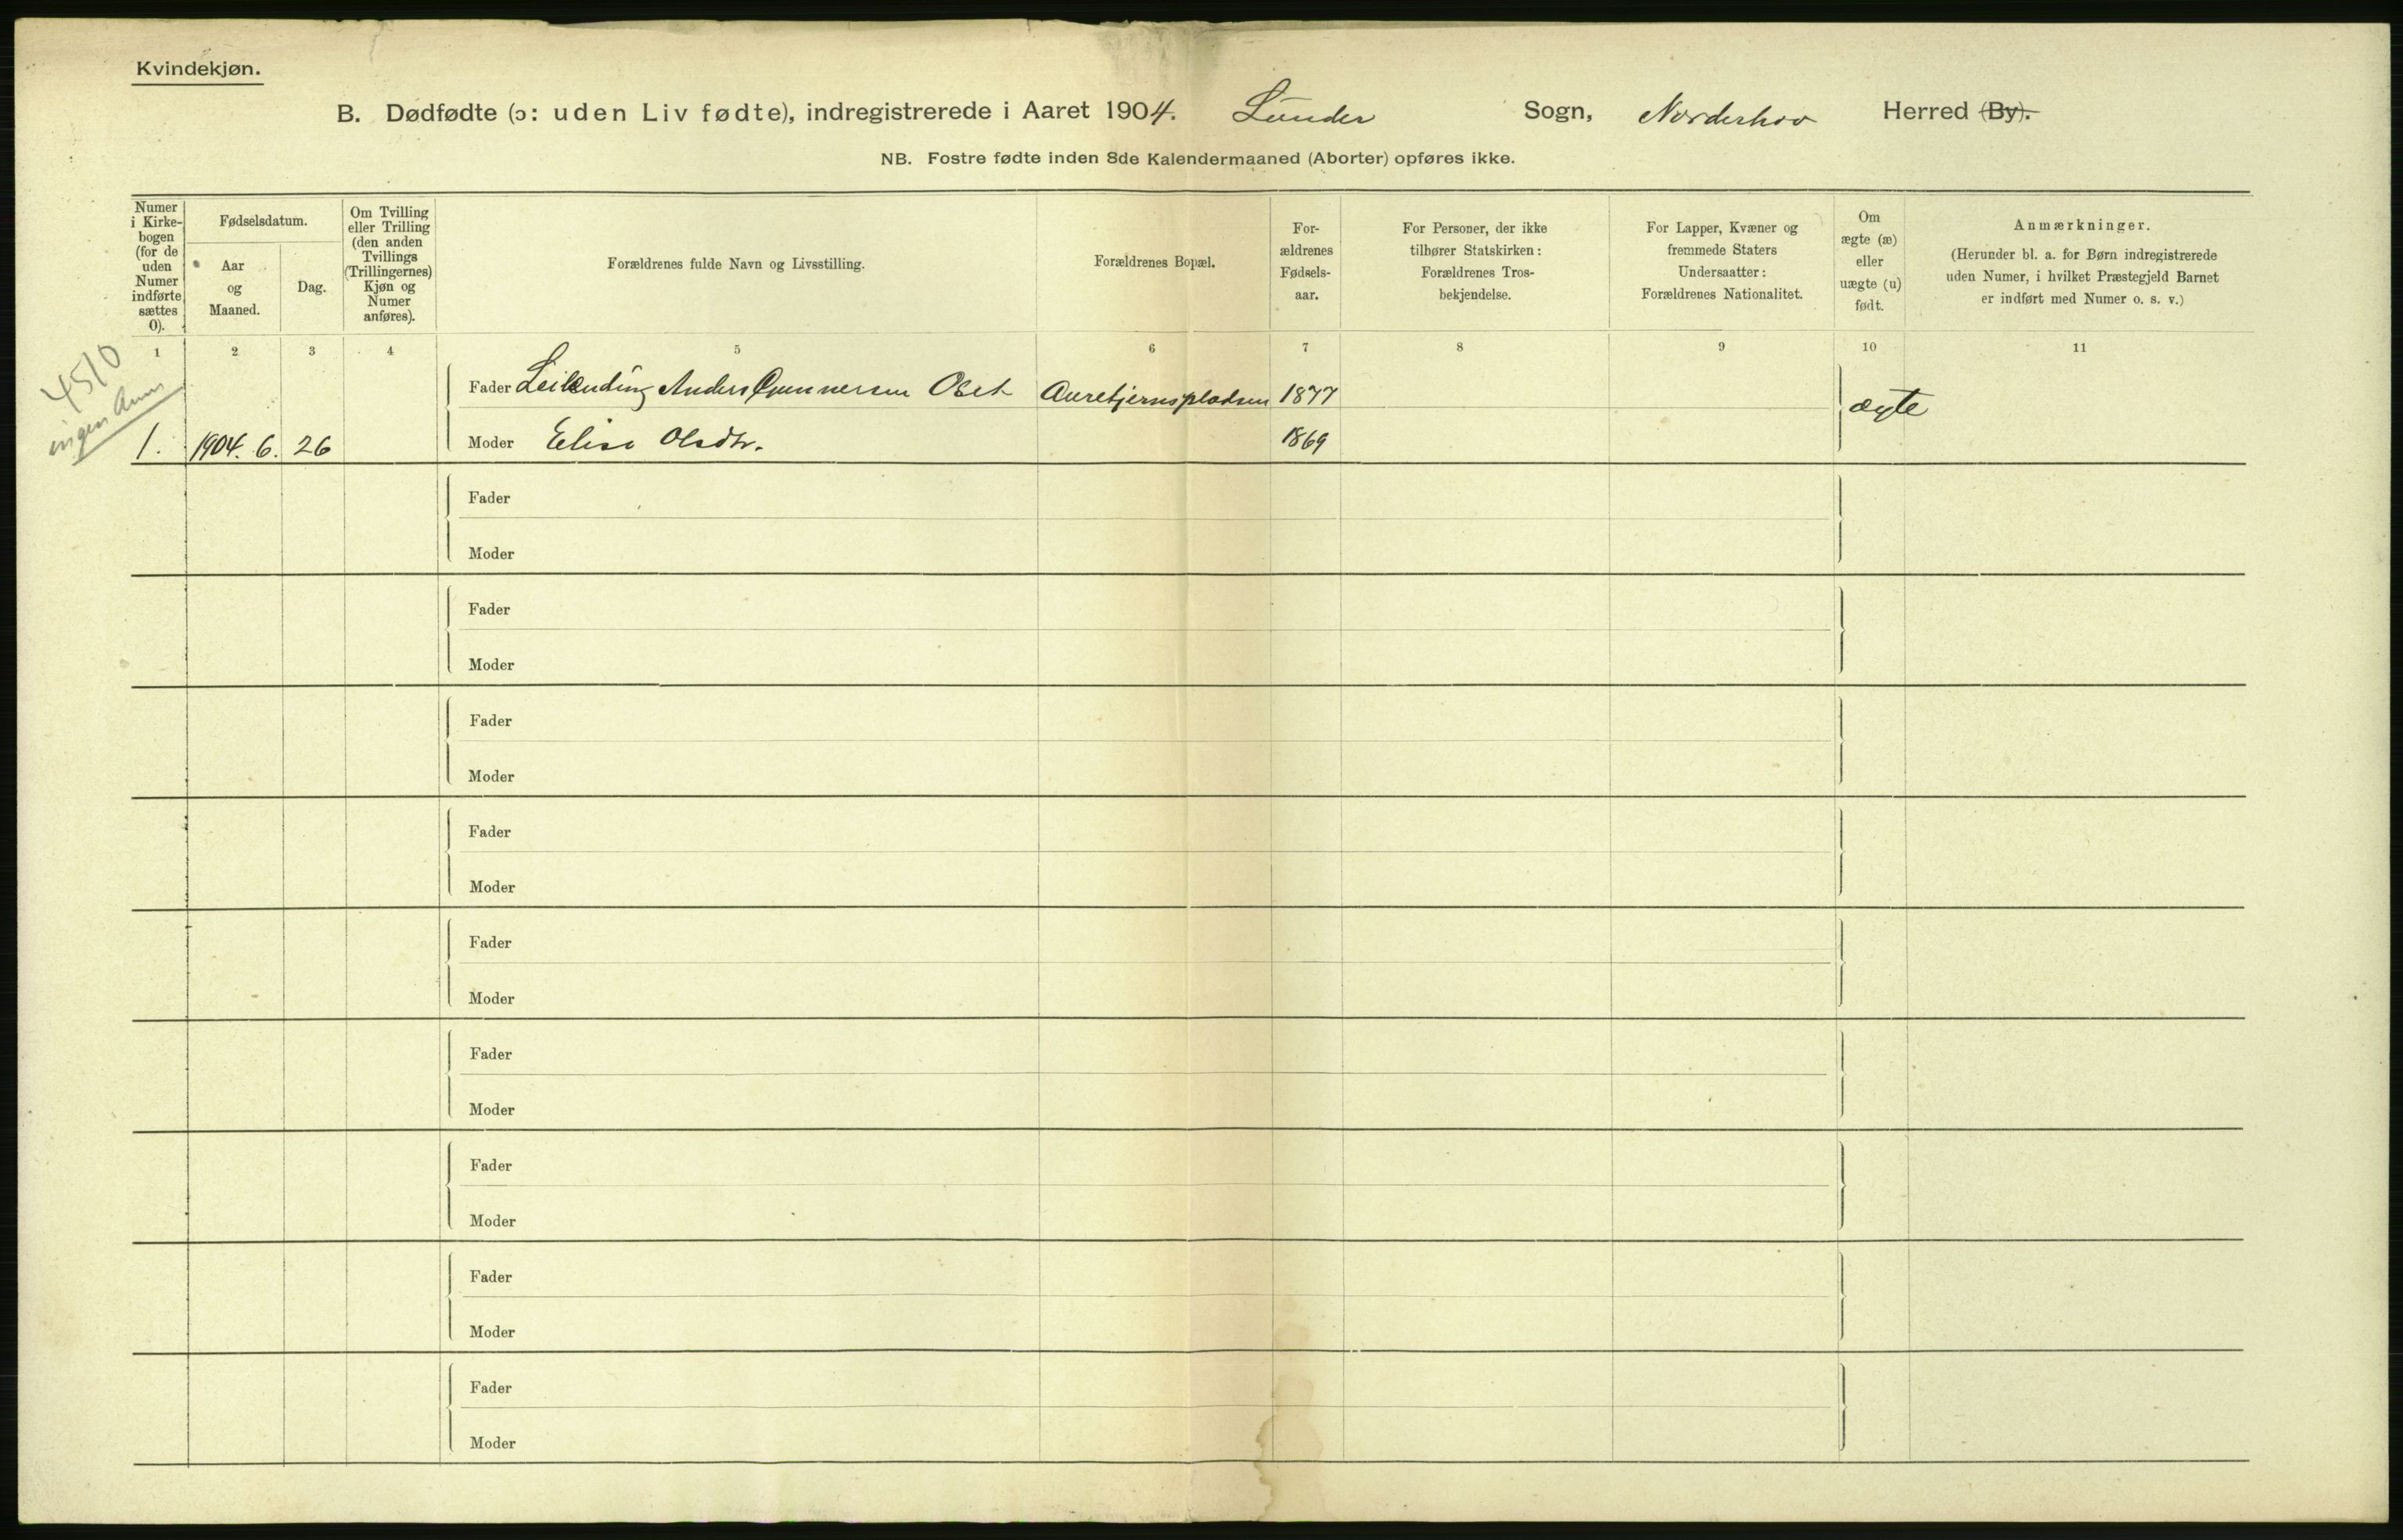 Kvindekjøn.
B. Dødfødte (ɔ: uden Liv fødte), indregistrerede i Aaret 1904. Lunder Sogn, Norderhov Herred (By).
NB. Fostre fødte inden 8de Kalendermaaned (Aborter) opføres ikke.
Numer
i Kirke-
bogen
(for de
uden
Numer
indførte
sættes
0).
Fødselsdatum.
Aar
og
Maaned.
Dag.
Om Tvilling
eller Trilling
(den anden
Tvillings
(Trillingernes)
Kjøn og
Numer
anføres).
Forældrenes fulde Navn og Livsstilling.
Forældrenes Bopæl.
For-
ældrenes
Fødsels-
aar.
For Personer, der ikke
tilhører Statskirken:
Forældrenes Tros-
bekjendelse.
For Lapper, Kvæner og
fremmede Staters
Undersaatter:
Forældrenes Nationalitet.
Om
ægte (æ)
eller
uægte (u)
født.
Anmærkninger.
(Herunder bl. a. for Børn indregistrerede
uden Numer, i hvilket Præstegjeld Barnet
er indført med Numer o. s. v.)
1 2 3 4 5 6 7 8 9 10 11
4510
ingen Anm
Fader Leilending Anders Gunnersen Auretjernspladsen 1877 ægte
1. 1904. 6. 26 Moder Elise Olsdtr. 1869
Fader
Moder
Fader
Moder
Fader
Moder
Fader
Moder
Fader
Moder
Fader
Moder
Fader
Moder
Fader
Moder
Fader
Moder